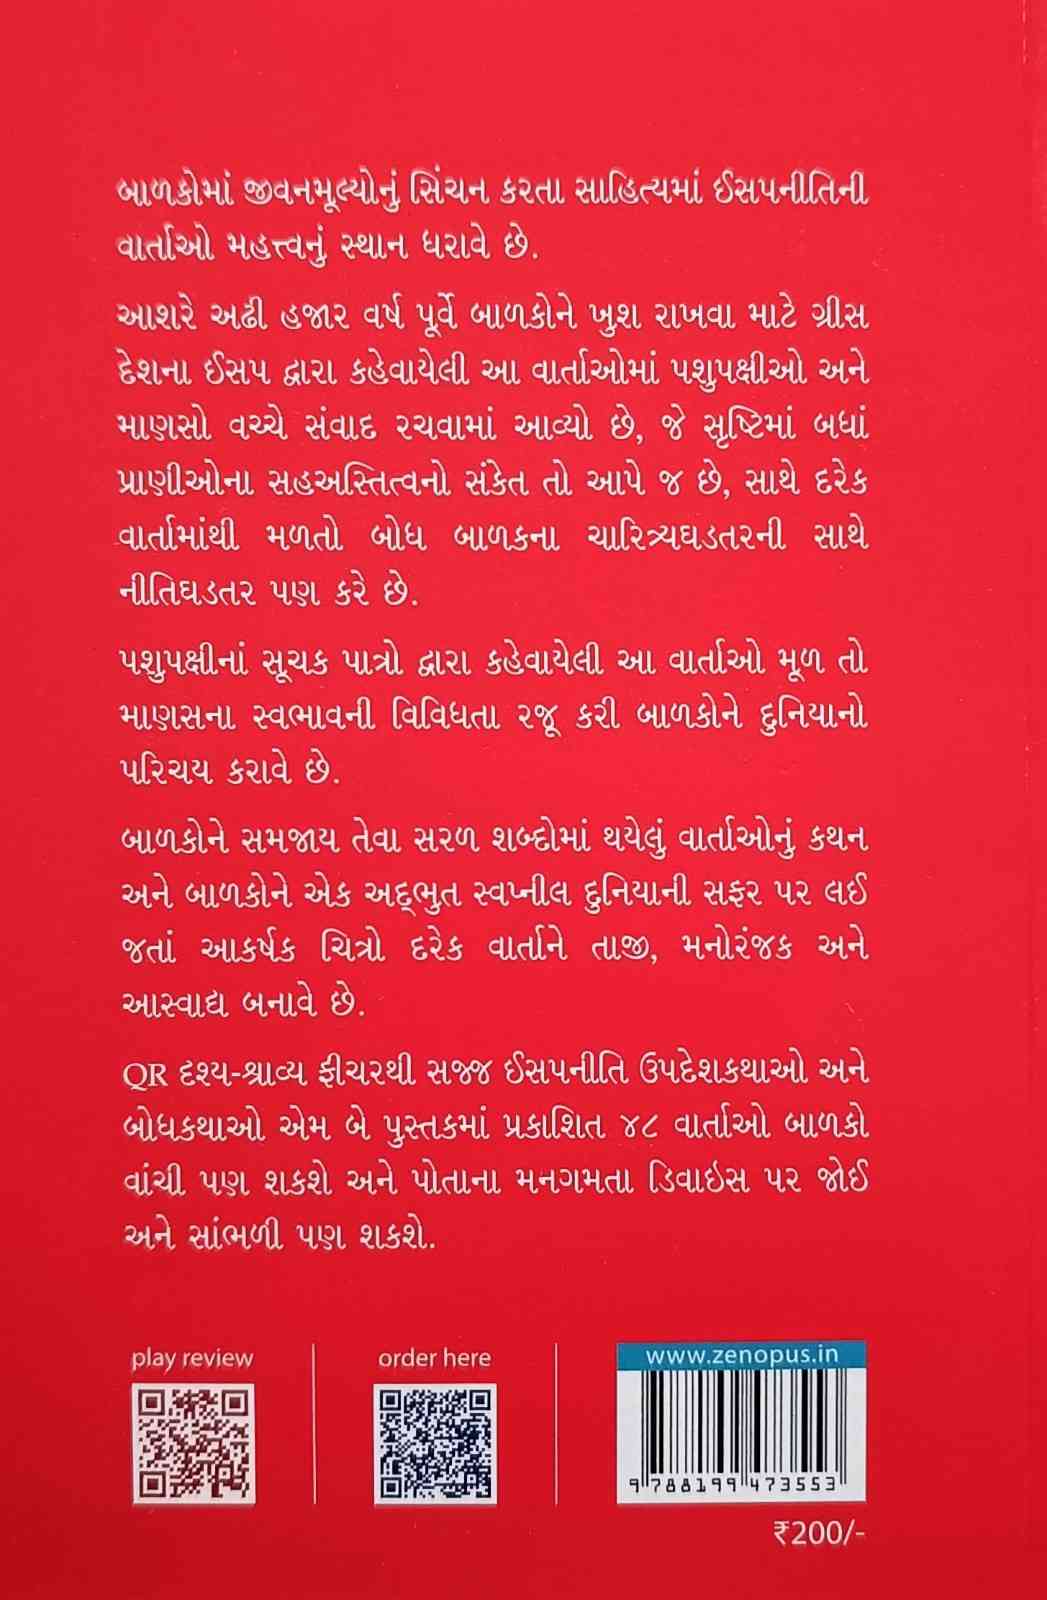 બાળકોમાં જીવનમૂલ્યોનું સિંચન કરતા સાહિત્યમાં ઈસપનીતિની
વાર્તાઓ મહત્ત્વનું સ્થાન ધરાવે છે.
આશરે અઢી હજાર વર્ષ પૂર્વે બાળકોને ખુશ રાખવા માટે ગ્રીસ
દેશના ઈસપ દ્વારા કહેવાયેલી આ વાર્તાઓમાં પશુપક્ષીઓ અને
માણસો વચ્ચે સંવાદ રચવામાં આવ્યો છે, જે સૃષ્ટિમાં બધાં
પ્રાણીઓના સહઅસ્તિત્વનો સંકેત તો આપે જ છે, સાથે દરેક
વાર્તામાંથી મળતો બોધ બાળકના ચારિત્ર્યઘડતરની સાથે
નીતિઘડતર પણ કરે છે.
પશુપક્ષીનાં સૂચક પાત્રો દ્વારા કહેવાયેલી આ વાર્તાઓ મૂળ તો
માણસના સ્વભાવની વિવિધતા રજૂ કરી બાળકોને દુનિયાનો
પરિચય કરાવે છે.
બાળકોને સમજાય તેવા સરળ શબ્દોમાં થયેલું વાર્તાઓનું કથન
અને બાળકોને એક અદ્ભુત સ્વપ્નીલ દુનિયાની સફર પર લઈ
જતાં આકર્ષક ચિત્રો દરેક વાર્તાને તાજી, મનોરંજક અને
આસ્વાદ્ય બનાવે છે.
QR દૃશ્ય-શ્રાવ્ય ફીચરથી સજ્જ ઈસપનીતિ ઉપદેશકથાઓ અને
બોધકથાઓ એમ બે પુસ્તકમાં પ્રકાશિત ૪૮ વાર્તાઓ બાળકો
વાંચી પણ શકશે અને પોતાના મનગમતા ડિવાઇસ પર જોઈ
અને સાંભળી પણ શકશે.
play review
order here
www.zenopus.in
9 788199 473553
₹200/-